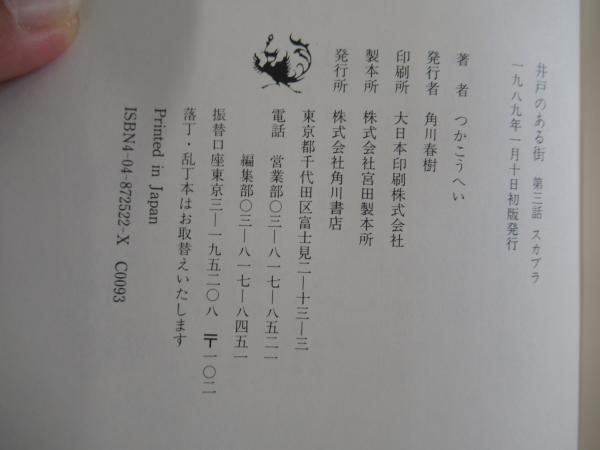 井戸のある街 第三話 スカブラ
一九八九年一月十日初版発行
著者 つかこうへい
発行者 角川春樹
印刷所 大日本印刷株式会社
製本所 株式会社宮田製本所
発行所 株式会社角川書店
東京都千代田区富士見二―十三―三
電話 営業部〇三―八一七―八五二一
編集部〇三―八一七―八四五一
振替口座東京三―一九五二〇八 〒一〇二
落丁・乱丁本はお取替えいたします
Printed in Japan
ISBN4-04-872522-X C0093